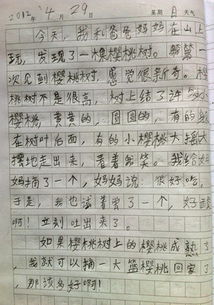 2012年4月29日 星期日 天气
今天，我和爸爸妈妈在山上
玩，发现了一棵樱桃树。我第一
次见到樱桃树，感觉很新奇。樱
桃树不是很高，树上结了许多
樱桃，黄黄的，圆圆的，有的躲
在树叶后面，有的小樱桃大摇大
摆地走出来，看着我笑。我给
妈妈摘了一个，妈妈说：很好吃，
于是，我也试着吃了一个，好酸
啊！立刻吐出来了。
如果樱桃树上的樱桃成熟了
，我就可以摘一大篮樱桃回家了
，那该多好啊！